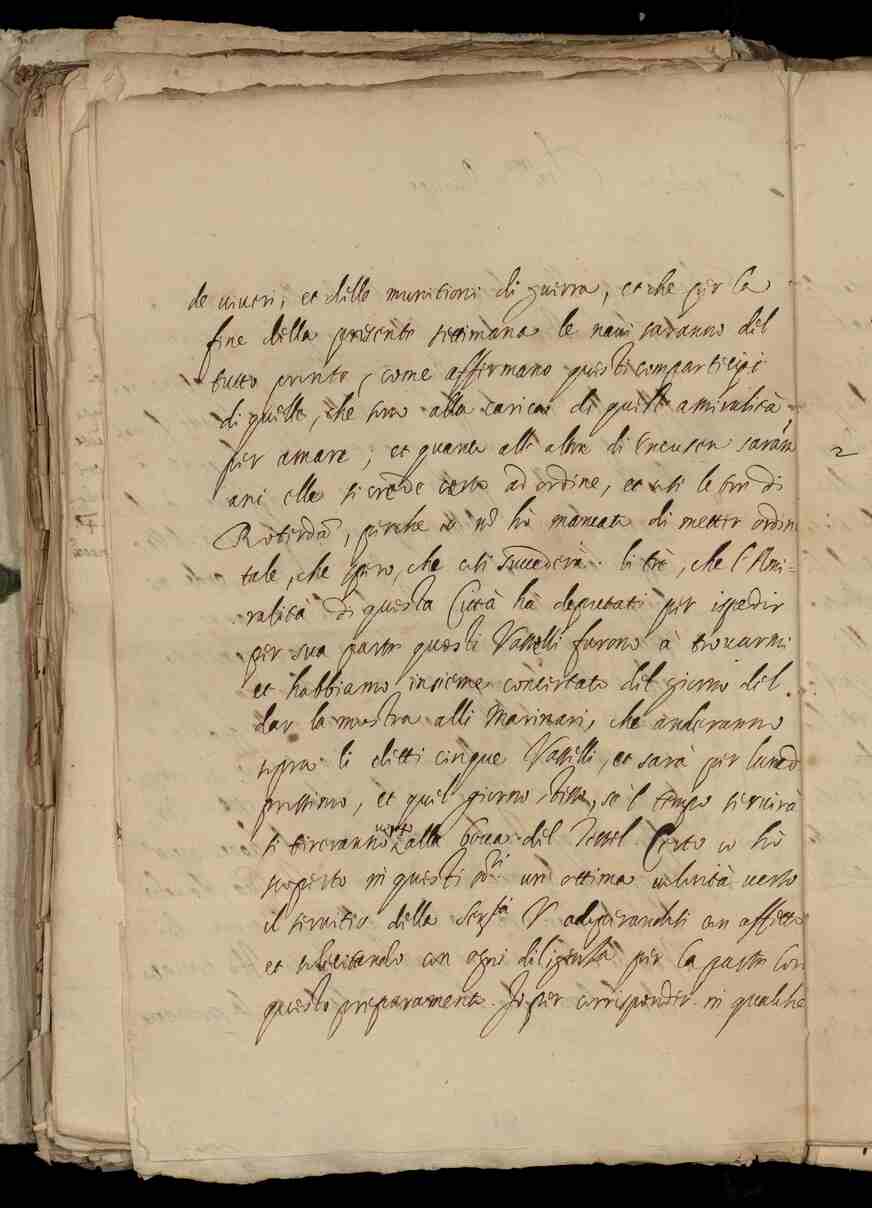 de viveri, et delle munitioni di guerra, et che per la
fine della presente settimana le navi saranno del
tutto pronte, come affermano questi comparticipi
di quelle, che sono alla carica di queste amiralità
per amare; et quanto alle altre di Encusen saran
ani elle si crede certo ad ordine, et così le tre di
Roterdã, perche io nõ hò mancato di metter ordine
tale, che spero, che così succederà. li trè, che l'Ami=
ralità di questa Città hà deputati per ispedir
per sua parte questi Vasselli furono à trovarmi
et habbiamo insieme concertato del giorno del
dar la mostra alli Marinari, che anderanno
sopra li detti cinque Vasselli, et sarà per lunedì
prossimo, et quel giorno stesso, se 'l tempo servirà
si tireranno verso alla bocca del Tessel. Certo io hò
scoperto in questi ss.ri un ottima volontà verso
il servitio della Ser.tà V. adoperandosi con affetto
et solicitando con ogni diligenza per la parte loro
questo preparamento. Io per corrisponder in qualche
2